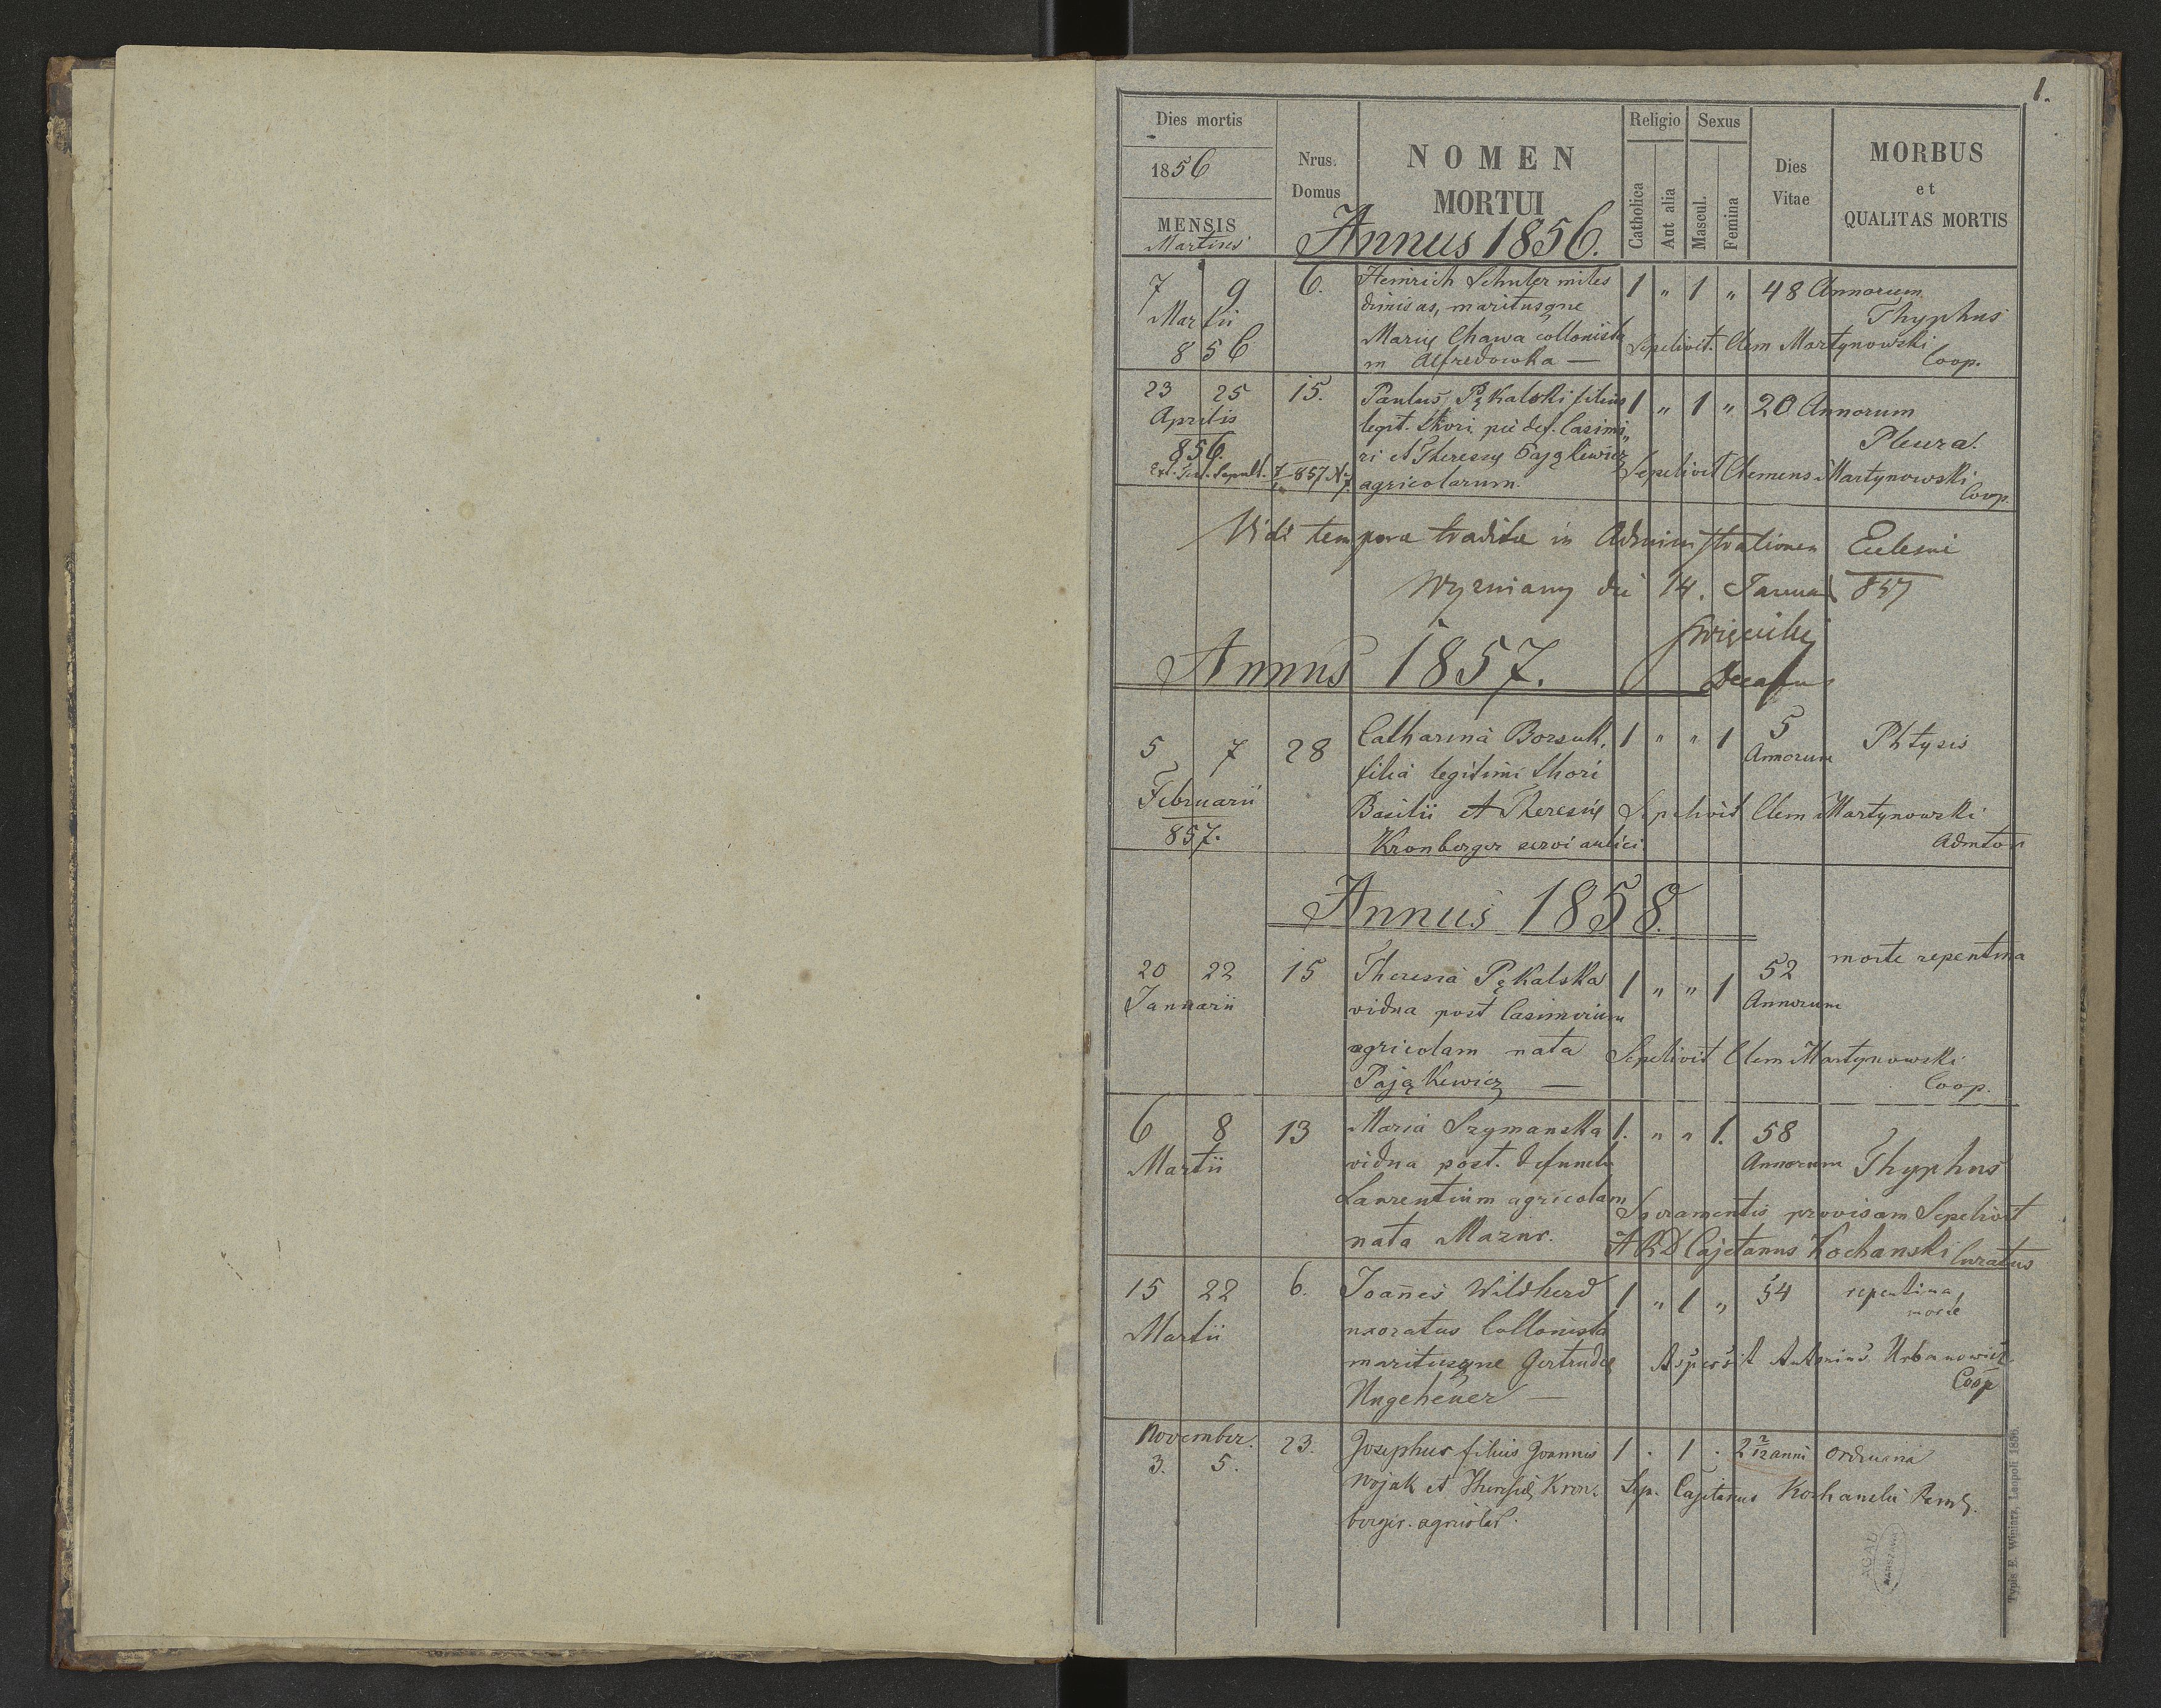 1.
Dies mortis
1856
MENSIS
Martius
Nrus.
Domus
NOMEN
MORTUI
Religio
Catholica
Aut alia
Sexus
Mascul.
Femina
Dies
Vitae
MORBUS
et
QUALITAS MORTIS
Annus 1856.
7 9 6. Heinrich Schuler miles 1 " 1 " 48 Annorum
dimisas, maritusque Thyphus
Martii
Marię Chawa collonista Sepelivit. Clem Martynowski
856 in Alfredowka — Coop.
23 25 15. Paulus Pękalski filius 1 " 1 " 20 Annorum
Aprilis legit. thori pie def. Casimi„
856. ri et Theresię Pająkiewicz Pleura.
Sepelivit Clemens Martynowski
Sepult. 857 N agricolarum. Coop.
Vidi tempore in Administrationem
Wyzniany die 14. Januar 857
Decanus
Annus 1857.
5 7 28 Catharina Borsuk, 1 " " 1 5 Phtysis
Annorum
filia legitimi thori
Februarii Basilii et Theresię Sepelivit Clem Martynowski
857. Kronberger servi aulici Admtor
Annus 1858.
20 22 15 Theresia Pękalska 1 " " 1 52 morte repentina
Januarii vidua post Casimirum Annorum
agricolam nata Sepelivit Clem Martynowski
Pająkiewicz — Coop.
6 8 13 Maria Szymanska 1. " " 1. 58
Martii vidua post. defunctu Annorum Thyphus
Laurentium agricolam Sacramentis provisam Sepelivit
nata Mazur. ARD Cajetanus Kochanski Curatus
15 22 6. Joañes Wildherd 1 " 1 " 54 repentina,
morte
Martii uxoratus Collonista
maritusque Gertrudę Aspersit Antonius Urbanowicz
Ungeheuer — Coop
November. 23. Josephus filius Joannis 1 . 1 . 2 2/12 anni ordinaria
3. 5. Wojak et Theresię Kron- Sep. Cajetanus Kochanski
berger. agricol.
AGAD
WARSZAWA
Typis E. Winiarz, Leopoli 1856.